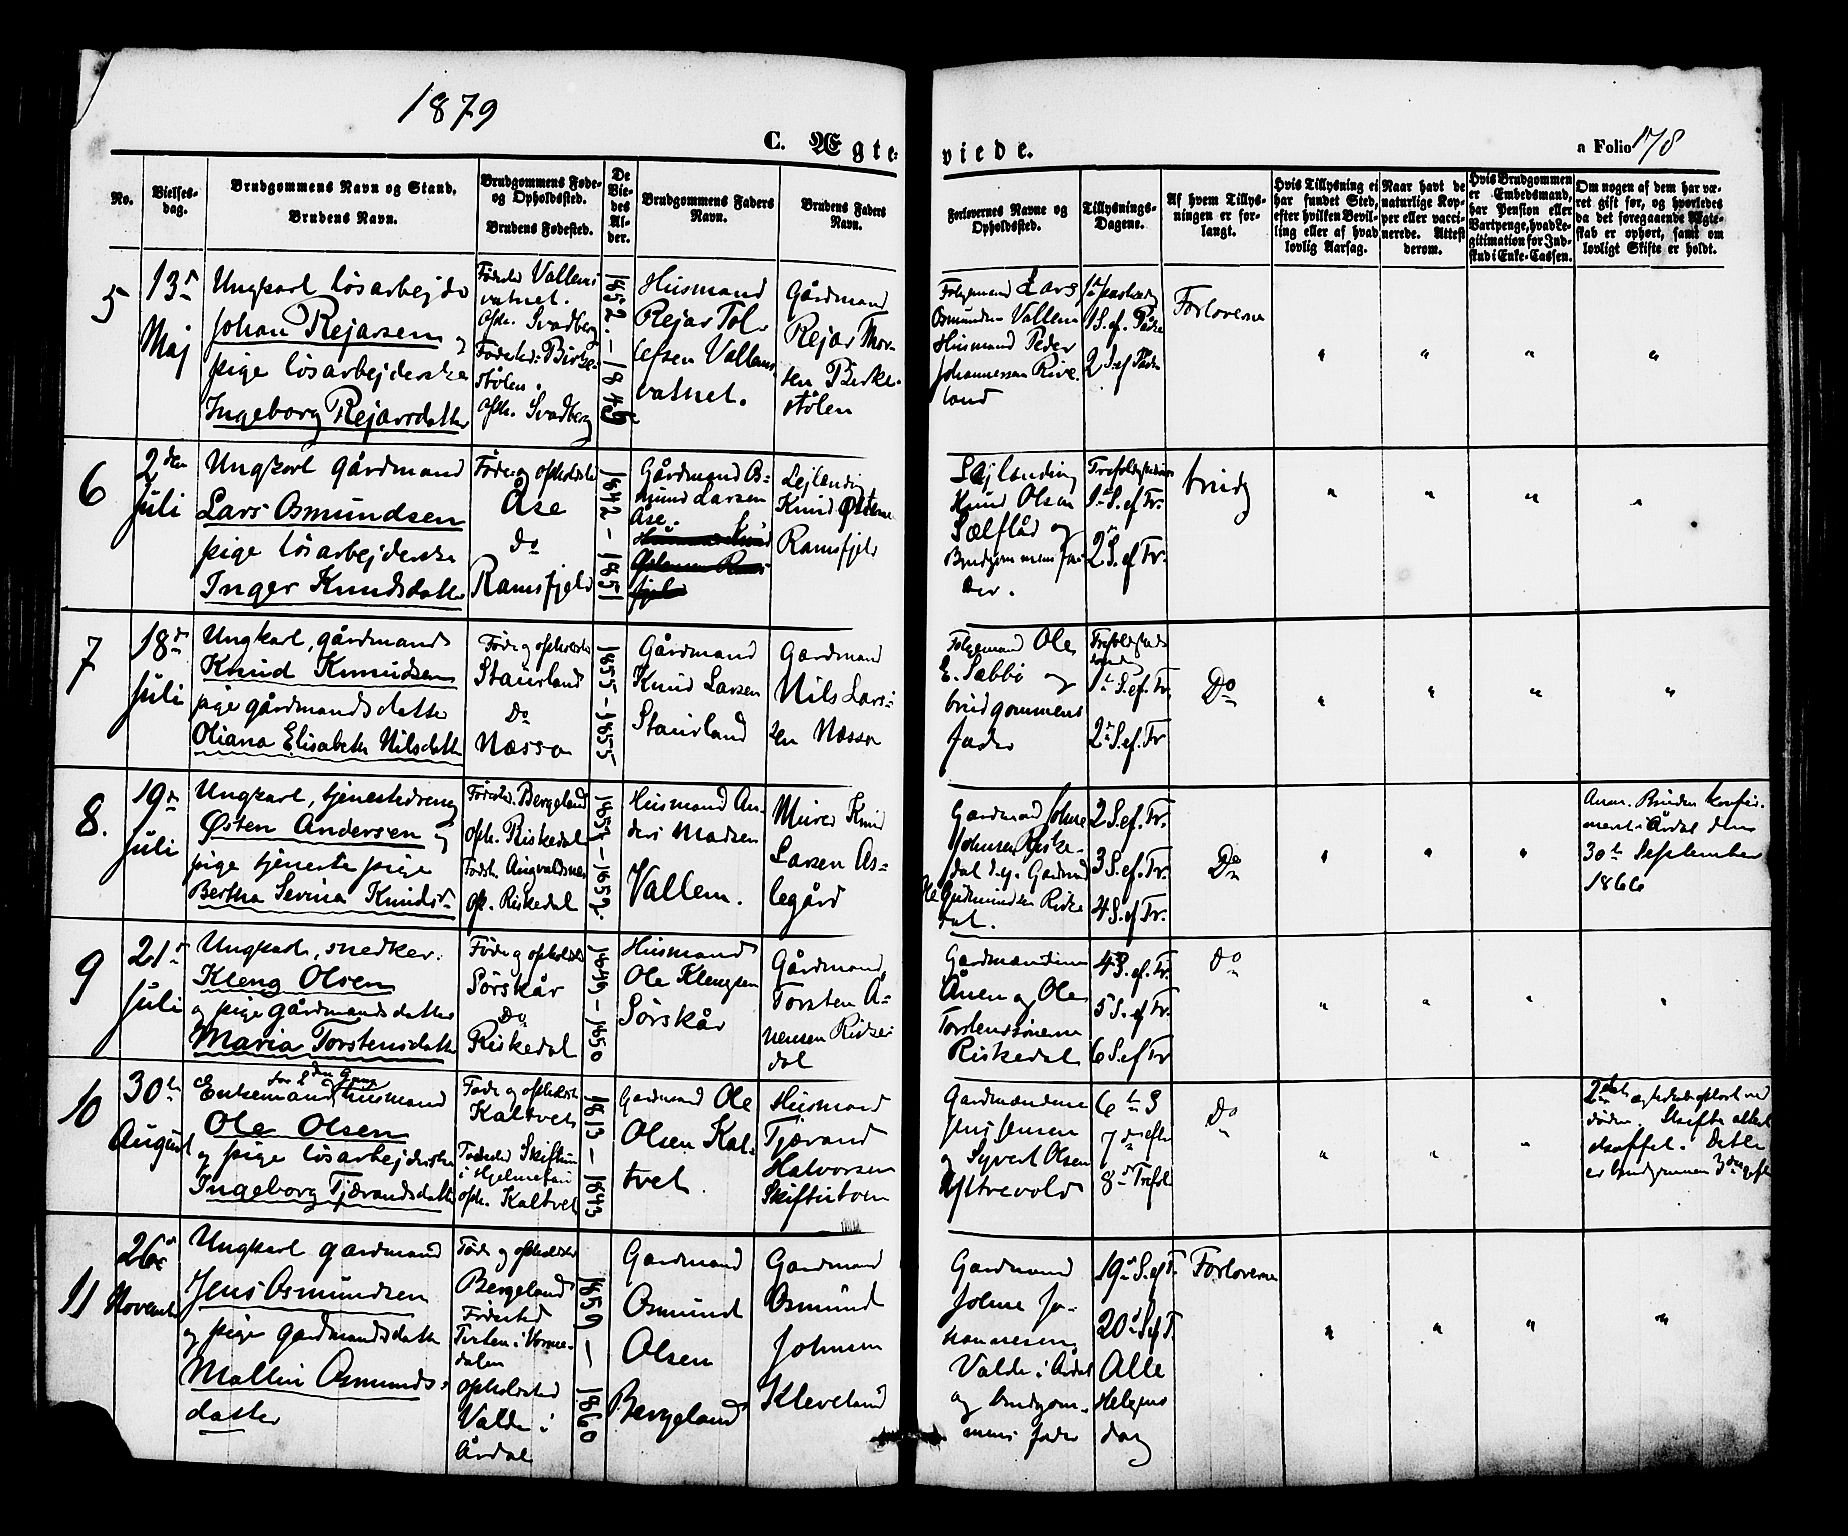 1879
C. Ægte-
viede.
a Folio 178
No.
Vielses-
dag.
Brudgommens Navn og Stand.
Brudens Navn.
Brudgommens Føde-
og Opholdssted.
Brudens Fødested.
De
Vie-
des
Al-
der.
Brudgommens Faders
Navn.
Brudens Faders
Navn.
Forlovernes Navne og
Opholdssted.
Tillysnings-
Dagene.
Af hvem Tillys-
ningen er for-
langt.
Hvis Tillysning ei
har fundet Sted,
efter hvilken Bevil-
ling eller af hvad
lovlig Aarsag.
Naar havt de
naturlige Kop-
per eller vacci-
nerede. Attest
derom.
Hvis Brudgommen
er Embedsmand,
har Pension eller
Vartpenge, hvad Le-
gitimation for Ind-
skud i Enke-Cassen.
Om nogen af dem har væ-
ret gift før, og hvorledes
da det foregaaende Ægte-
skab er ophørt, samt om
lovligt Skifte er holdt.
5
13de
Maj
Ungkarl løsarbejder
Johan Rejarsen og
pige løsarbejderske
Ingeborg Rejarsdatter
Fødested Vallems
vatnet.
oph. Svadberg
Fødested: Birke-
stølen.
oph. Svadberg
1852. - 1845
Husmand
Rejar Tol-
lefsen Vallems
vatnet.
Gårdmand
Rejar Thor-
sen Birke-
stølen
Følgemand Lars
Osmundsen Vallem
Husmand Peder
Johannessen Rive-
land
1ste paaskedag
1 S. ef. Påske
2 S. ef Påske
Forloverne
" " " "
6
2den
Juli
Ungkarl gårdmand
Lars Osmundsen
pige løsarbejderske
Inger Knudsdatter
Føde og opholdssted
Åse
Do
Ramsfjeld
1842 - 1851
Gårdmand Os-
mund Larsen
Åse.
Lejlending
Knud Østense
Ramsfjeld
Lejlending
Knud Olsen
Sælflåd og
Brudgommens fa-
der.
1ste S. ef Tr.
2den S. ef Tr.
brudg
" " " "
7
18de
Juli
Ungkarl, gårdmand
Knud Knudsen
pige gårdmandsdatter
Oliana Elisabeth Nilsdatter
Føde og opholdssted
Staurland
Do
Næssa
1855 - 1855
Gårdmand
Knud Larsen
Staurland
Gardmand
Nils Lars-
sen Næssa
Følgemand Ole
E. Sæbbø og
brudgommens
fader
1ste S. ef. Tr.
2den S. ef. Tr
Do
" " " "
8.
19de
Juli
Ungkarl, tjenestedreng
Østen Andersen og
pige tjenestepige
Bertha Serina Knudsd.
Fødested. Bergeland
oph. Riskedal
Fødst. Augvaldsnes
op. Riskedal
1857 - 1852.
Husmand An-
ders Madsen
Vallem.
Murer Knud
Larsen As-
legård
Gårdmand Johne
Johnsen Riske-
dal d.y. Gårdmd
Ole Gudmundsen Riske
dal.
2 S. ef. Tr.
3 S. ef. Tr.
4 S. ef Tr.
Do
" " "
Anm. Bruden konfir-
meret i Årdal den
30te September
1866
9
21de
Juli
Ungkarl, snedker.
Kleng Olsen
og pige gårdmandsdatter
Maria Torstensdatter
Føde og opholdssted
Sørskår
Do
Riskedal
1849 - 1850
Husmand
Ole Klengsen
Sørskår
Gårdmand
Torsten Å-
nensen Riske-
dal
Gårdmændene
Ånen og Ole
Torstensønerne
Riskedal
4 S. ef. Tr.
5 S. ef Tr.
6 S. ef Tr
Do
" " " "
10
30te
August
for 2den Gang
Enkemand, husmand
Ole Olsen
og pige løsarbejderske
Ingeborg Tjærandsdatter
Føde og opholdssted
Kaltvet
Fødested Skiftun
i Hjelmeland
oph. Kaltvet
1813 - 1843
Gardmand Ole
Olsen Kal-
tvet
Husmand
Tjærand
Halvorsen
Skiftuntun
Gardmændene
Jens Jensen
og Syvert Olsen
Yttrevold
6te S
7de efter
8de Trefol
Do
" " "
2det ægteskab ophørt ved
døden. Skifte
. Dette
er brudgommen 3die gift
11
26de
November
Ungkarl gardmand
Jens Osmundsen
og pige gardmandsdatter
Mallin Osmunds-
datter
Føde og opholdssted
Bergeland
Fødested
i Vorme-
dalen
opholdssted
Valde i
Årdal
1859 - 1860
Gardmand
Osmund
Olsen
Bergeland
Gardmand
Osmund
Johnsen
Kleveland
Gardmand
Johne Jo-
hannesen
Valde i Årdal
og brudgom-
mens fader
19de S. ef T.
20de S. ef T.
Alle
Helgens
dag
Forloverne
" " " "